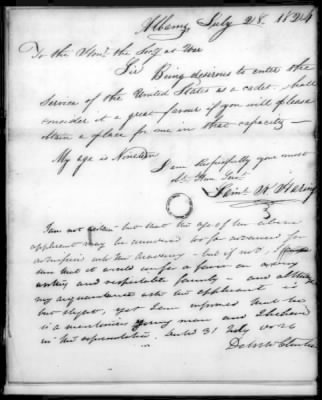 Albany July 28. 1824
To the Honl. the Secy at War
Sir Being desirous to enter the
Service of the United States as a cadet, shall
consider it a great favour if you will please
obtain a place for me in that capacity —
My age is Nineteen
I am respectfully your most
Ob. Hum Servt
Herring
I am not certain but that the age of the above
applicant may be considered too far advanced for
admission into the Academy - but if not, I
that it would confer a favor on a very
worthy and respectable family - and altho
my acquaintance with the applicant is
but slight, yet I am informed that he
is a meritorious young man and I believe
in the representation. 31 July 1824
DeWitt Clinton